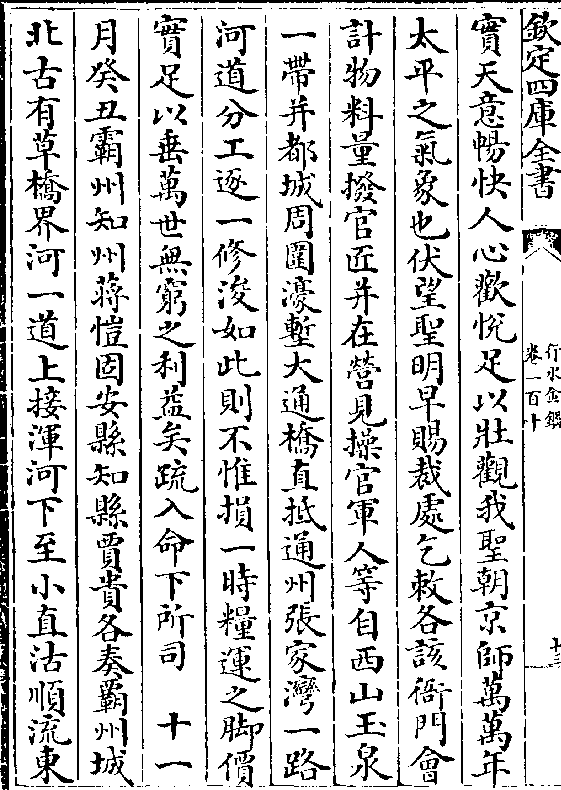 欽定四庫全書
行水金鑑
卷一百十
十三
實天意暢快人心歡悅足以壯觀我聖朝京師萬萬年
太平之氣象也伏望聖明早賜裁處乞敕各該衙門會
計物料量撥官匠并在營見操官軍人等自西山玉泉
一帶并都城周圍濠塹大通橋直抵通州張家灣一路
河道分工逐一修浚如此則不惟損一時糧運之脚價
實足以垂萬世無窮之利益矣疏入命下所司　十一
月癸丑霸州知州蔣愷固安縣知縣賈貴各奏霸州城
北古有草橋界河一道上接渾河下至小直沽順流東